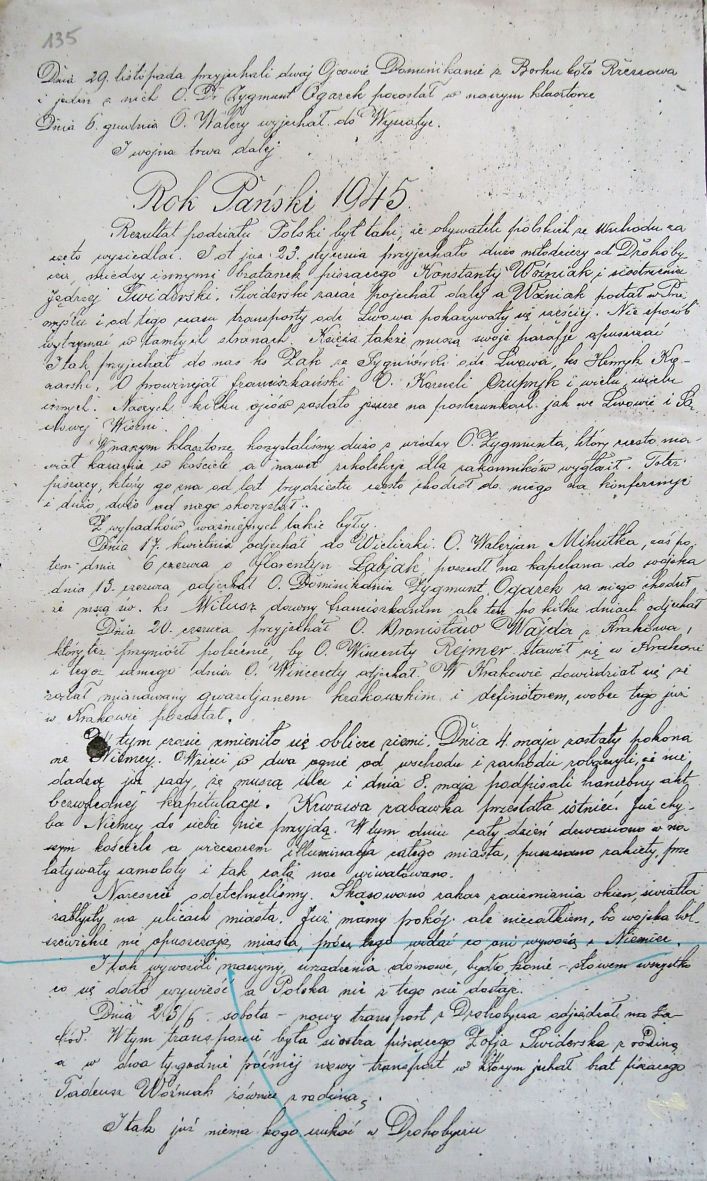 135
Dnia 29. listopada przyjechali dwaj Ojcowie Dominikanie z Borku koło Rzeszowa
i jeden z nich O. Dr Zygmunt Ogarek pozostał w naszym klasztorze
Dnia 6. grudnia O. Walery wyjechał do Wyszatyc.
I wojna trwa dalej
Rok Pański 1945.
Rezultat podziału Polski był taki, że obywateli polskich ze wschodu za
częto wysiedlać. I ot już 23. stycznia przyjechało dużo młodzieży od Drohoby
cza, między innymi bratanek piszącego Konstanty Woźniak i siostrzeniec
Jędrzej Świderski. Świderski zaraz pojechał dalej a Woźniak został w Prze
myślu i od tego czasu transporty ode Lwowa pokazywały się częściej. Nie sposób
wytrzymać w tamtych stronach. Księża także muszą swoje parafje opuszczać
I tak przyjechał do nas ks Żak ze ode Lwowa, ks Henryk
O prowincjał franciszkański O. Korneli Czupryk i wielu, wielu
innych. Naszych kilku ojców zostało jeszcze na posterunkach jak we Lwowie i Są
dowej Wiszni.
W naszym klasztorze korzystaliśmy dużo z wiedzy O. Zygmunta, który często mie
wał kazania w kościele a nawet rekolekcje dla zakonników wygłosił. Toteż
piszący, który go zna od lat trzydziestu często chodził do niego na konferencje
i dużo, dużo od niego skorzystał.
Z wypadków ważniejszych takie były.
Dnia 17. kwietnia odjechał do Wieliczki O. Walerjan Mihułka, zaś po
tem dnia 6 czerwca o Florentyn Łabjak poszedł na kapelana do wojska
dnia 13. czerwca odjechał O. Dominikanin Zygmunt Ogarek za niego chodził
ze mszą św. ks Witusz dawny franciszkanin ale też po kilku dniach odjechał
Dnia 20. czerwca przyjechał O. Bronisław Wajda z Krakowa,
który też przyniósł polecenie, by O. Wincenty Rejmer stawił się w Krakowie
i tegoż samego dnia O. Wincenty odjechał. W Krakowie dowiedział się że
został mianowany gwardjanem krakowskim i definitorem, wobec tego już
w Krakowie pozostał.
W tym czasie zmieniło się oblicze ziemi. Dnia 4. maja zostały pokona
ne Niemcy. Wzięci w dwa ognie od wschodu i zachodu zobaczyli, że nie
dadzą już rady, że muszą ulec i dnia 8. maja podpisali haniebny akt
bezwzględnej kapitulacji. Krwawa zabawka przestała istnieć. Już chy-
ba Niemcy do siebie nie przyjdą. W tym dniu cały dzień dzwoniono w na
szym kościele a wieczorem illuminacja całego miasta, puszczano rakiety, prze
latywały samoloty i tak całą noc wiwatowano.
Nareszcie odetchnęliśmy. Skasowano zakaz zaciemniania okien, światła
zabłysły na ulicach miasta. Już mamy pokój ale niecałkiem, bo wojska bol
szewickie nie opuszczają miasta, prócz tego widać co oni wywożą z Niemiec.
I tak wywozili maszyny, urządzenia domowe, bydło, konie - słowem wszystko
co się dało wywieść, a Polska nic z tego nie dostaje.
Dnia 23/6 - sobota - nowy transport z Drohobycza odjeżdżał na Za-
chód. W tym transporcie była siostra piszącego Zofja Świderska z rodziną
a w dwa tygodnie później nowy transport w którym jechał brat piszącego
Tadeusz Woźniak również z rodziną.
I tak już niema kogo szukać w Drohobyczu